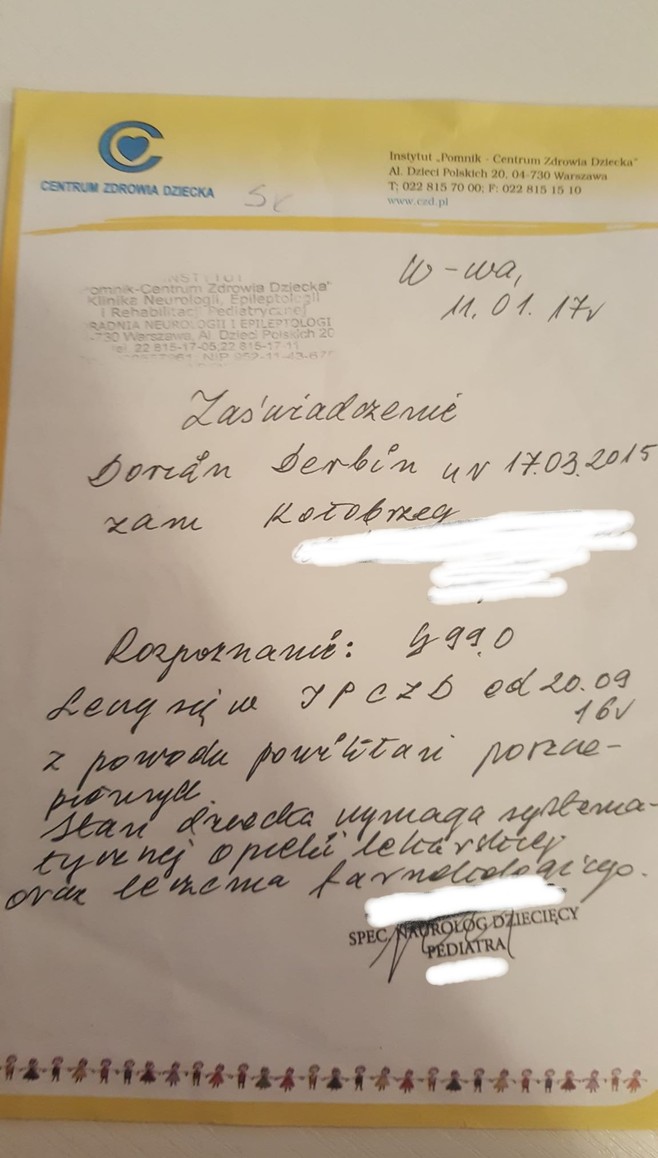 CENTRUM ZDROWIA DZIECKA
Instytut „Pomnik - Centrum Zdrowia Dziecka"
Al. Dzieci Polskich 20, 04-730 Warszawa
T; 022 815 70 00; F: 022 815 15 10
www.czd.pl
INSTYTUT
"omnik-Centrum Zdrowia Dziecka"
Klinika Neurologii, Epileptologii
i Rehabilitacji Pediatrycznej
RADNIA NEUROLOGII I EPILEPTOLOGI
-730 Warszawa, Al. Dzieci Polskich 20
tel. 22 815-17-05,22 815-17-11
W-wa,
11.01.17r
Zaświadczenie
Dorian Derbin ur 17.03.2015
zam Kołobrzeg
Rozpoznanie: G99.0
Leczy się w IPCZD od 20.09
16r
z powodu powikłań poszcze-
piennych.
Stan dziecka wymaga systema-
tycznej opieki lekarskiej
oraz leczenia farmakologicznego.
SPEC. NAUROLOG DZIECIĘCY
PEDIATRA